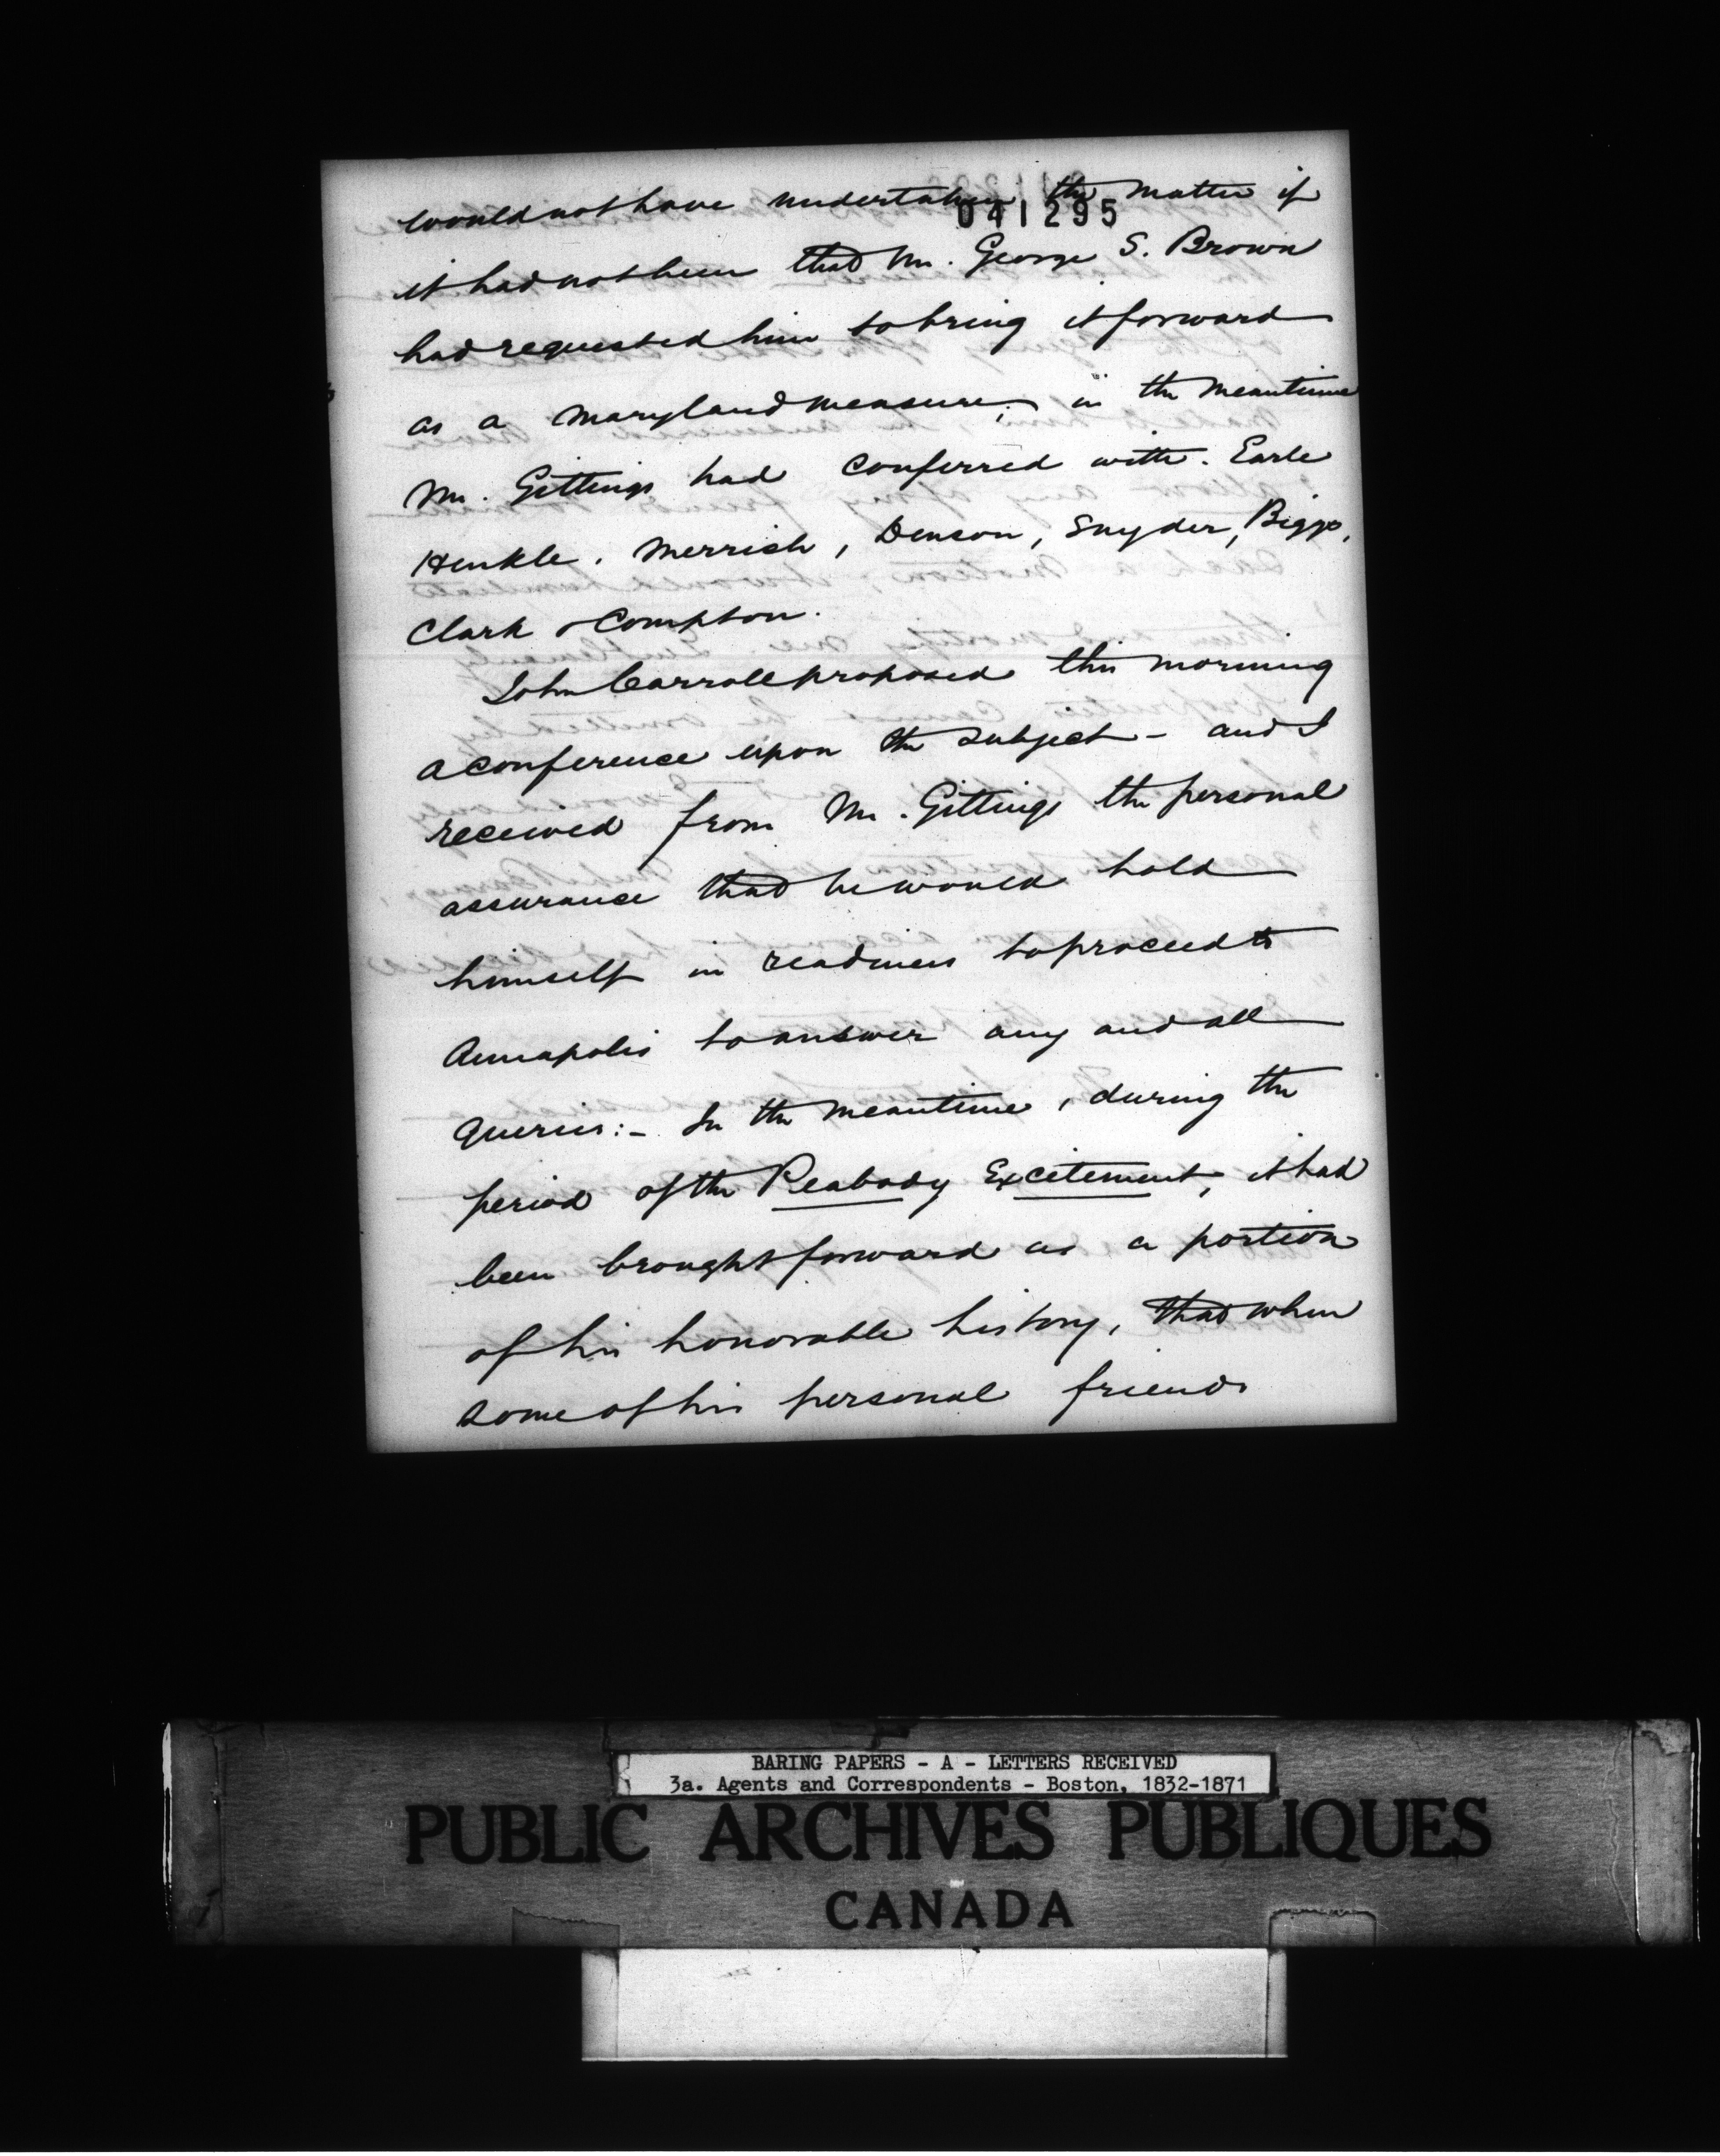 would not have undertaken the matter if
041295
it had not been that Mr. George S. Brown
had requested him to bring it forward
as a Maryland measure; in the meantime
Mr. Gittings had conferred with. Earle
Henkle, Merrick, Denson, Snyder, Biggs,
Clark & Compton.
John Carroll proposed this morning
a conference upon the subject - and I
received from Mr. Gittings the personal
assurance that he would hold
himself in readiness to proceed to
Annapolis to answer any and all
queries:- In the meantime, during the
period of the Peabody Excitement, it had
been brought forward as a portion
of his honorable history, that when
some of his personal friends
BARING PAPERS - A - LETTERS RECEIVED
3a. Agents and Correspondents - Boston, 1832-1871
PUBLIC ARCHIVES PUBLIQUES
CANADA